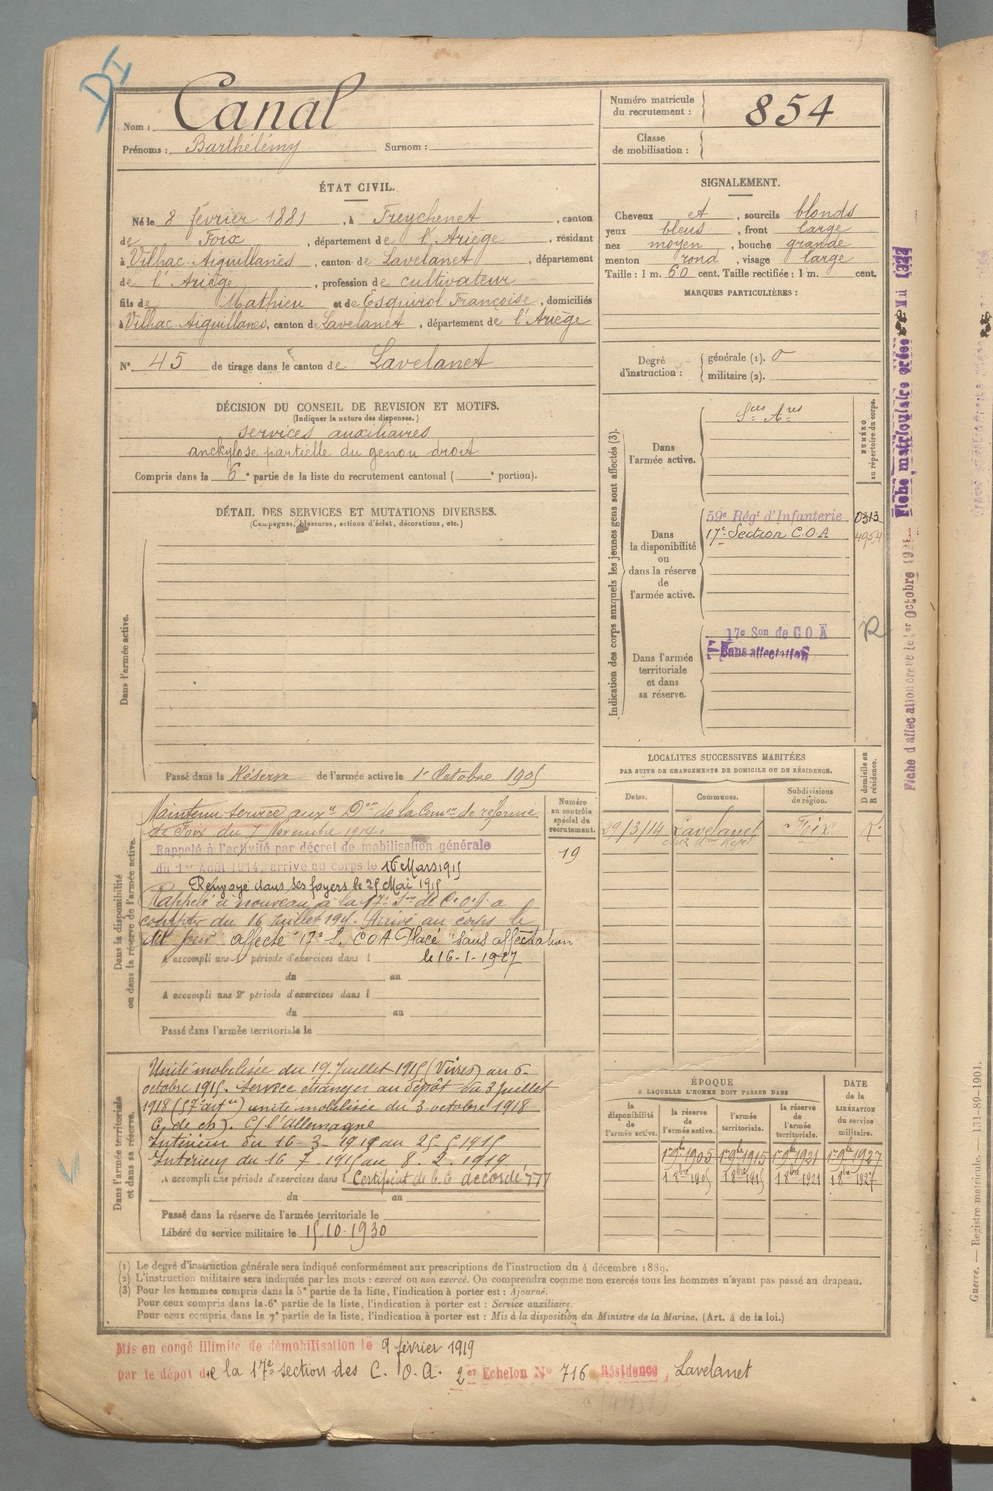 Nom : Canal
Prénoms : Barthélémy Surnom :
Numéro matricule du recrutement : 854
Classe de mobilisation :
ÉTAT CIVIL.
Né le 8 février 1881, à Freychenet, canton
de Foix, département de l'Ariège, résidant
à Vilhac Aiguillanes, canton de Lavelanet, département
de l'Ariège, profession de cultivateur
fils de Mathieu et de Esquirol Françoise, domiciliés
à Vilhac Aiguillanes, canton de Lavelanet, département de l'Ariège
N° 45 de tirage dans le canton de Lavelanet
SIGNALEMENT.
Cheveux et, sourcils blonds
yeux bleus, front large
nez moyen, bouche grande
menton rond, visage large
Taille : 1 m. 60 cent. Taille rectifiée : 1 m. cent.
MARQUES PARTICULIÈRES :
Degré d'instruction : générale (1). 0
militaire (2).
DÉCISION DU CONSEIL DE REVISION ET MOTIFS.
(Indiquer la nature des dispenses.)
services auxiliaires
anckylose partielle du genou droit
Compris dans la 6e partie de la liste du recrutement cantonal ( e portion).
DÉTAIL DES SERVICES ET MUTATIONS DIVERSES.
(Campagnes, blessures, actions d'éclat, décorations, etc.)
Dans l'armée active.
Passé dans la Réserve de l'armée active le 1er Octobre 1905
Indication des corps auxquels les jeunes gens sont affectés (3).
NUMÉRO au répertoire du corps.
Dans l'armée active.
Sces Ares
Dans la disponibilité ou dans la réserve de l'armée active.
59e Régt d'Infanterie 0313
17e Section C.O.A 4954
Dans l'armée territoriale et dans sa réserve.
17e Son de COA
Sans affectation
R
Fiche matriculaire créée
Fiche d'affectation créée le 1er Octobre
Dans la disponibilité ou dans la réserve de l'armée active.
Maintenu service auxre Don de la Comon de réforme
de Foix du 7 Novembre 1914.
Rappelé à l'activité par décret de mobilisation générale
du 1er Août 1914, arrivé au corps le 16 Mars 1915
Renvoyé dans ses foyers le 25 Mai 1915
Rappelé à nouveau à la 17e Son de C.O.A. à
compter du 16 Juillet 1915. Arrivé au corps le
dit jour affecté 17e S. COA Placé "sans affectation
A accompli une 1re période d'exercices dans l le 16-1-1927
du au
A accompli une 2e période d'exercices dans l
du au
Passé dans l'armée territoriale le
Numéro au contrôle spécial du recrutement.
19
LOCALITÉS SUCCESSIVES HABITÉES
PAR SUITE DE CHANGEMENTS DE DOMICILE OU DE RÉSIDENCE.
Dates. Communes. Subdivisions de région. D domicile ou R résidence.
29/3/14 Lavelanet Foix R.
Dans l'armée territoriale et dans sa réserve.
Unité mobilisée du 19 Juillet 1915 (Vivres) au 5
octobre 1915. Service étranger au dépôt du 3 Juillet
1918 unité mobilisée du 3 octobre 1918
C. de ch). C/ l'Allemagne
Intérieur du 16-3-1915 au 25-5-1915
Intérieur du 16-7-1915 au 8-2-1919
A accompli une période d'exercices dans l Certificat de accordé
du au
Passé dans la réserve de l'armée territoriale le
Libéré du service militaire le 15-10-1930
ÉPOQUE
À LAQUELLE L'HOMME DOIT PASSER DANS
la disponibilité de l'armée active. la réserve de l'armée active. l'armée territoriale. la réserve de l'armée territoriale.
DATE de la LIBÉRATION du service militaire.
1er 9bre 1905 1er 9bre 1915 1er 9bre 1921 1er 9bre 1927
1 8bre 1905 1 8bre 1915 1 8bre 1921 1 8bre 1927
(1) Le degré d'instruction générale sera indiqué conformément aux prescriptions de l'instruction du 4 décembre 1889.
(2) L'instruction militaire sera indiquée par les mots : exercé ou non exercé. On comprendra comme non exercés tous les hommes n'ayant pas passé au drapeau.
(3) Pour les hommes compris dans la 5e partie de la liste, l'indication à porter est : Ajourné.
Pour ceux compris dans la 6e partie de la liste, l'indication à porter est : Service auxiliaire.
Pour ceux compris dans la 7e partie de la liste, l'indication à porter est : Mis à la disposition du Ministre de la Marine. (Art. 4 de la loi.)
Mis en congé illimité de démobilisation le 9 février 1919
par le dépôt de la 17e section des C.O.A. 2er Echelon N° 716 Résidence Lavelanet
Guerre. — Registre matricule. — 131-89-1901.